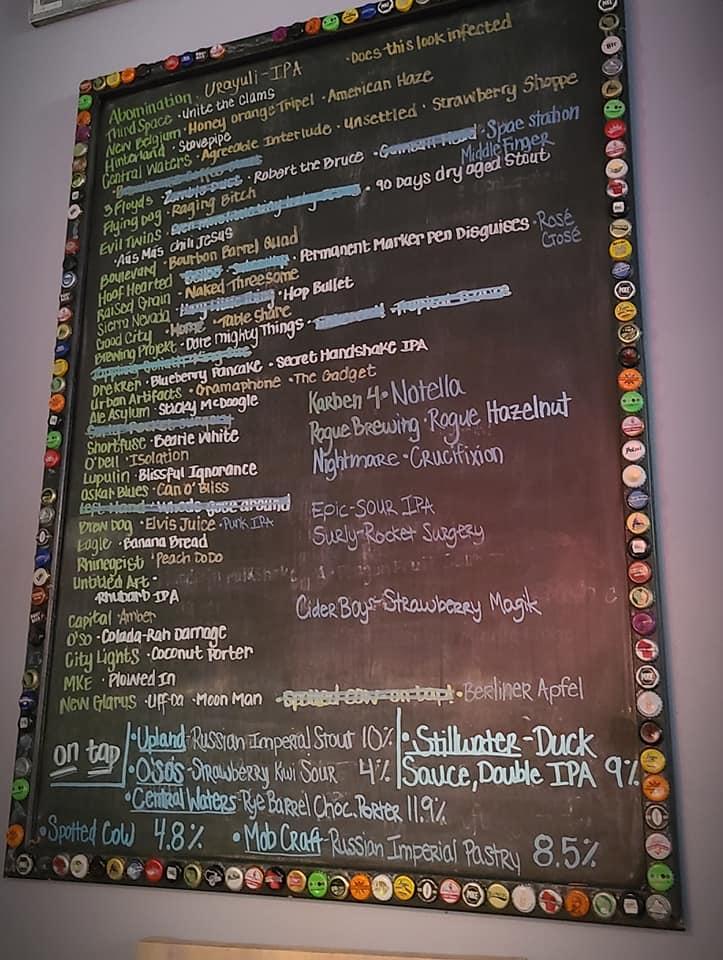 Abomination · Urayuli-IPA · Does this look infected
Third Space · Unite the Clams
New Belgium · Honey Orange Tripel · American Haze
Hinterland · Stovepipe
Central Waters · Agreeable Interlude · Unsettled · Strawberry Shoppe
3 Floyds · Zombie Dust · Robert the Bruce · Gumball Head · Spae station
Middle Finger
Flying Dog · Raging Bitch
Evil Twins · 90 Days dry aged Stout
· Aús Más Chili Jesus
Boulevard · Bourbon Barrel Quad
Hoof Hearted · Permanent Marker Pen Disguises · Rosé
Gosé
Raised Grain · Naked Threesome
Sierra Nevada · Hop Bullet
Good City · Home · Table Share
Brewing Projekt · Dare Mighty Things ·
Drekker · Blueberry Pancake · Secret Handshake IPA
Urban Artifacts · Gramaphone · The Gadget
Ale Asylum · Sticky McDoogle
Karben 4 · Notella
Rogue Brewing · Rogue Hazelnut
Shortfuse · Bearie White
O'Dell · Isolation
Nightmare · Crucifixion
Lupulin · Blissful Ignorance
Oskar Blues · Can O' Bliss
Left Hand · Whode Gose around
Epic-SOUR IPA
Brew Dog · Elvis Juice · Punk IPA
Surly-Rocket Surgery
Eagle · Banana Bread
Rhinegeist · Peach DoDo
Untitled Art ·
· Rhubarb IPA
CiderBoys-Strawberry Magik
Capital · Amber
O'so · Colada-Rah Damage
City Lights · Coconut Porter
MKE · Plowed In
New Glarus · Uff-Da · Moon Man · Spotted Cow-on tap! · Berliner Apfel
on tap
· Upland-Russian Imperial Stout 10%
· O'so's-Strawberry Kiwi Sour 4%
· Stillwater-Duck
Sauce, Double IPA 9%
· Central Waters-Rye Barrel Choc. Porter 11.9%
· Spotted Cow 4.8% · Mob Craft-Russian Imperial Pastry 8.5%